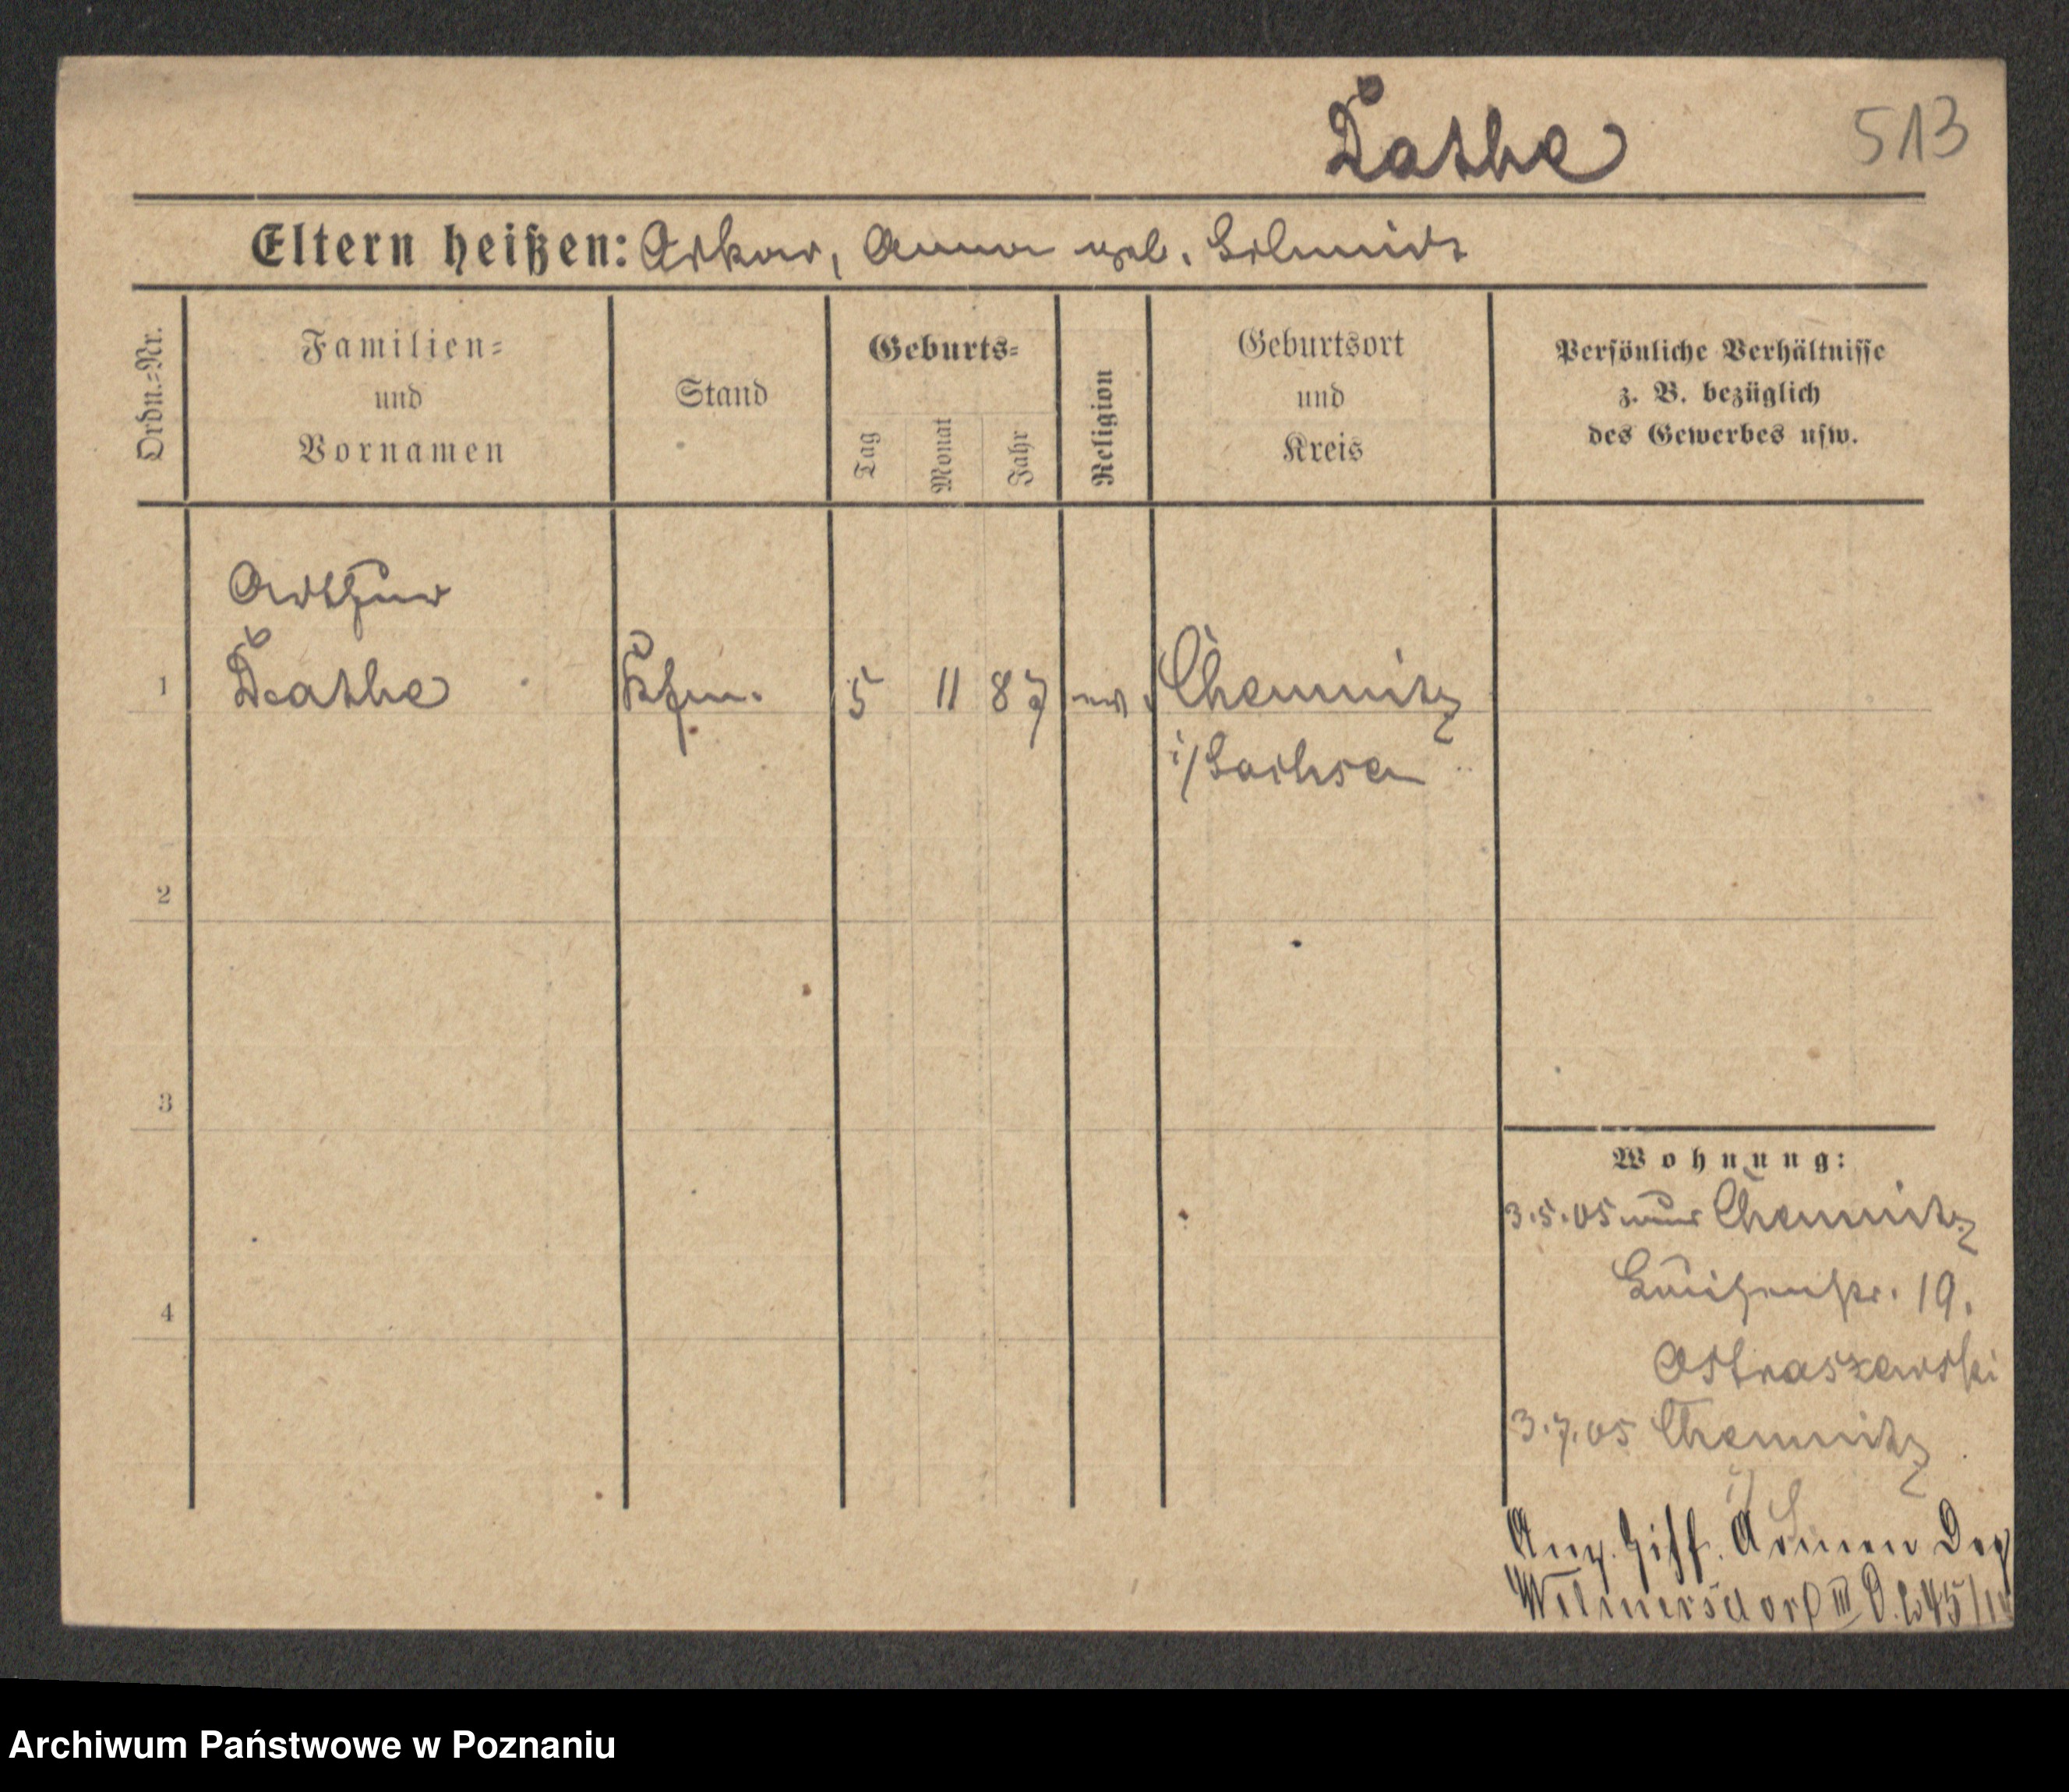 Dathe
513
Eltern heißen: Oskar, Anna geb. Schmidt
Ordn.=Nr.
Familien=
und
Vornamen
Stand
Geburts=
Tag
Monat
Jahr
Religion
Geburtsort
und
Kreis
Persönliche Verhältnisse
z. B. bezüglich
des Gewerbes usw.
Arthur
1 Dathe Kfm. 5 11 87 Chemnitz
i/Sachsen
2
3
4
Wohnung:
3.5.05 Chemnitz
Luisenstr. 19.
Ostraszewski
3.7.05 Chemnitz
i/S
Anz. Armen
Wilmersdorf III
Archiwum Państwowe w Poznaniu